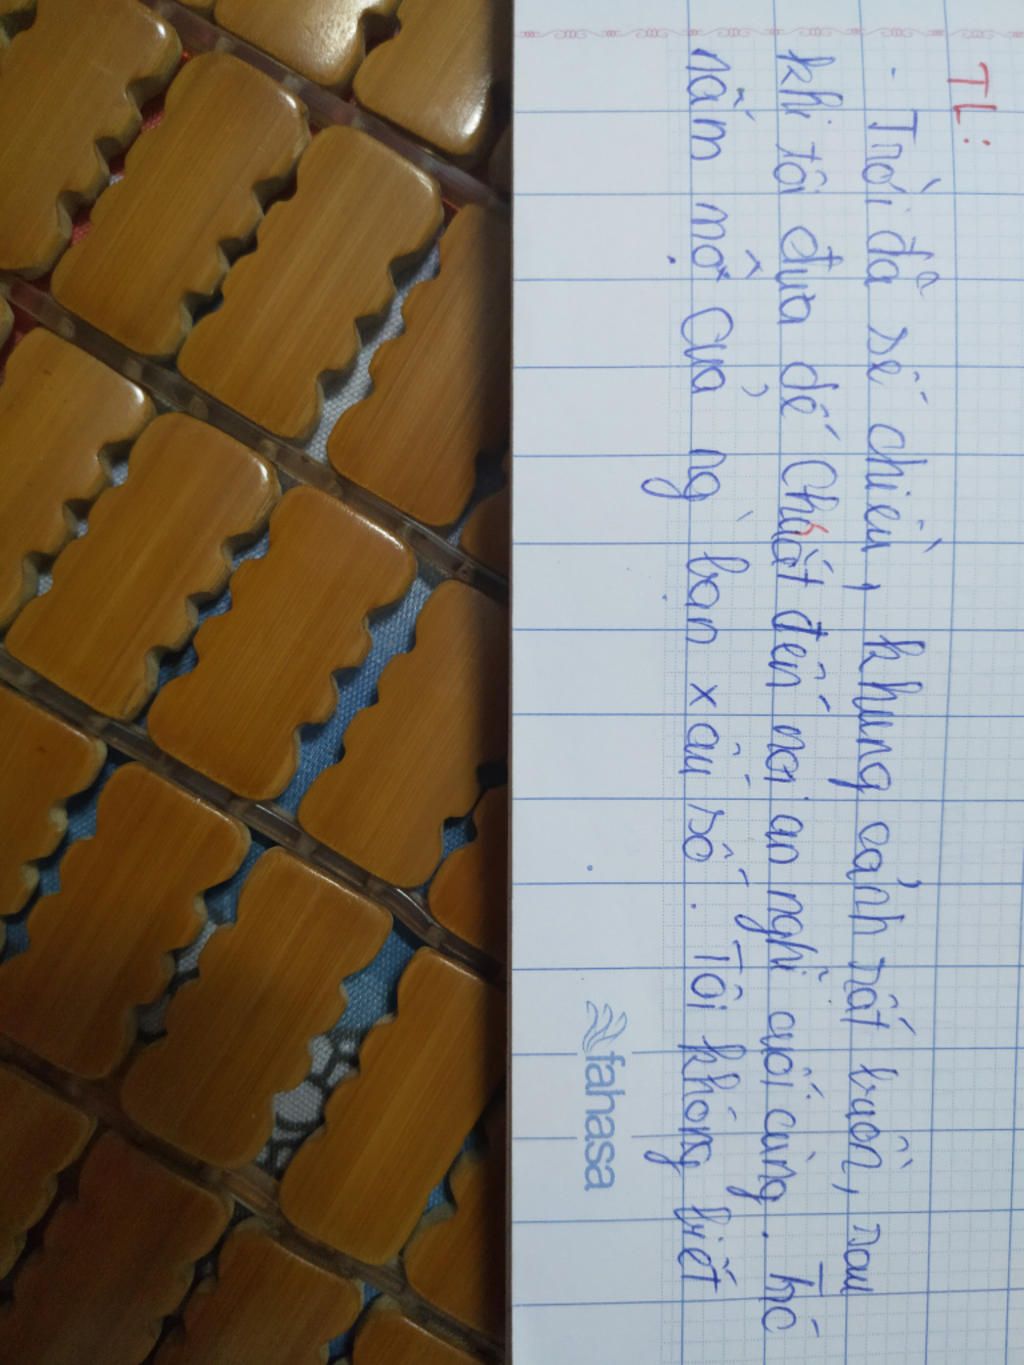 TL:
- Trời đã xế chiều, khung cảnh rất buồn, sau
khi tôi đưa dế Choắt đến nơi an nghỉ cuối cùng. Tró
nấm mồ của ng` bạn xấu số. Tôi không biết
fahasa